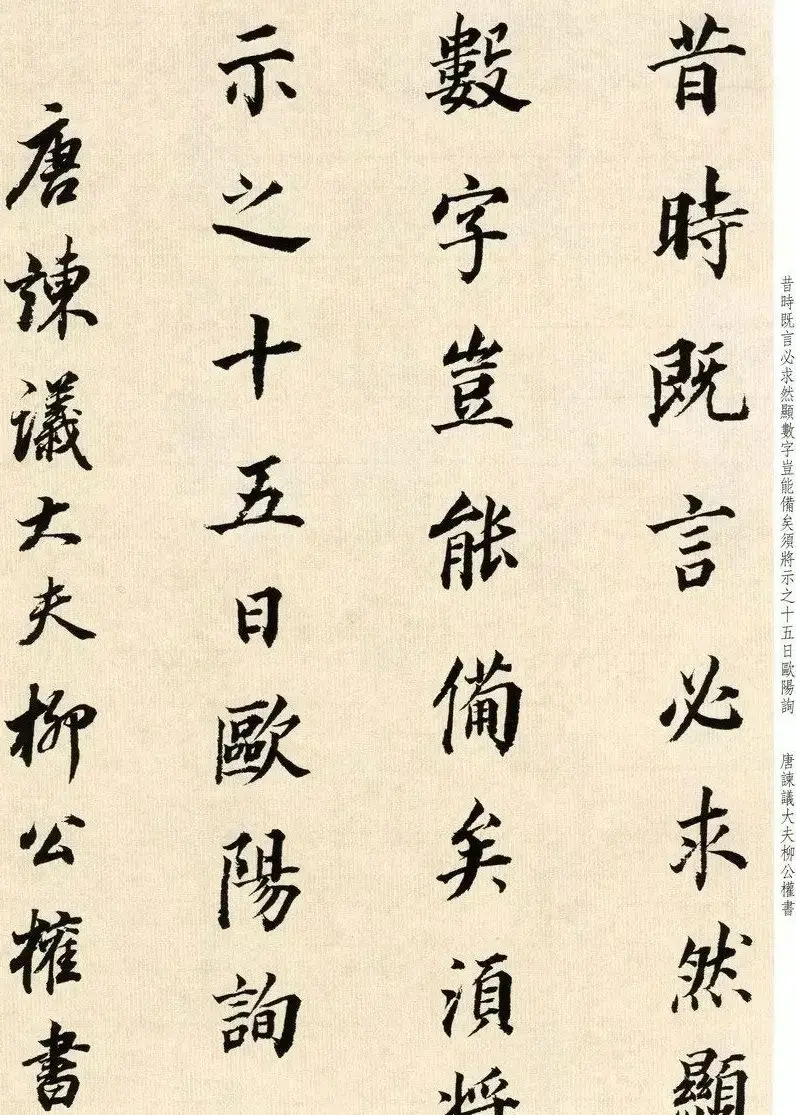 昔時既言必求然顯
數字豈能備矣須將
示之十五日歐陽詢
唐諫議大夫柳公權書
昔時既言必求然顯數字豈能備矣須將示之十五日歐陽詢
唐諫議大夫柳公權書